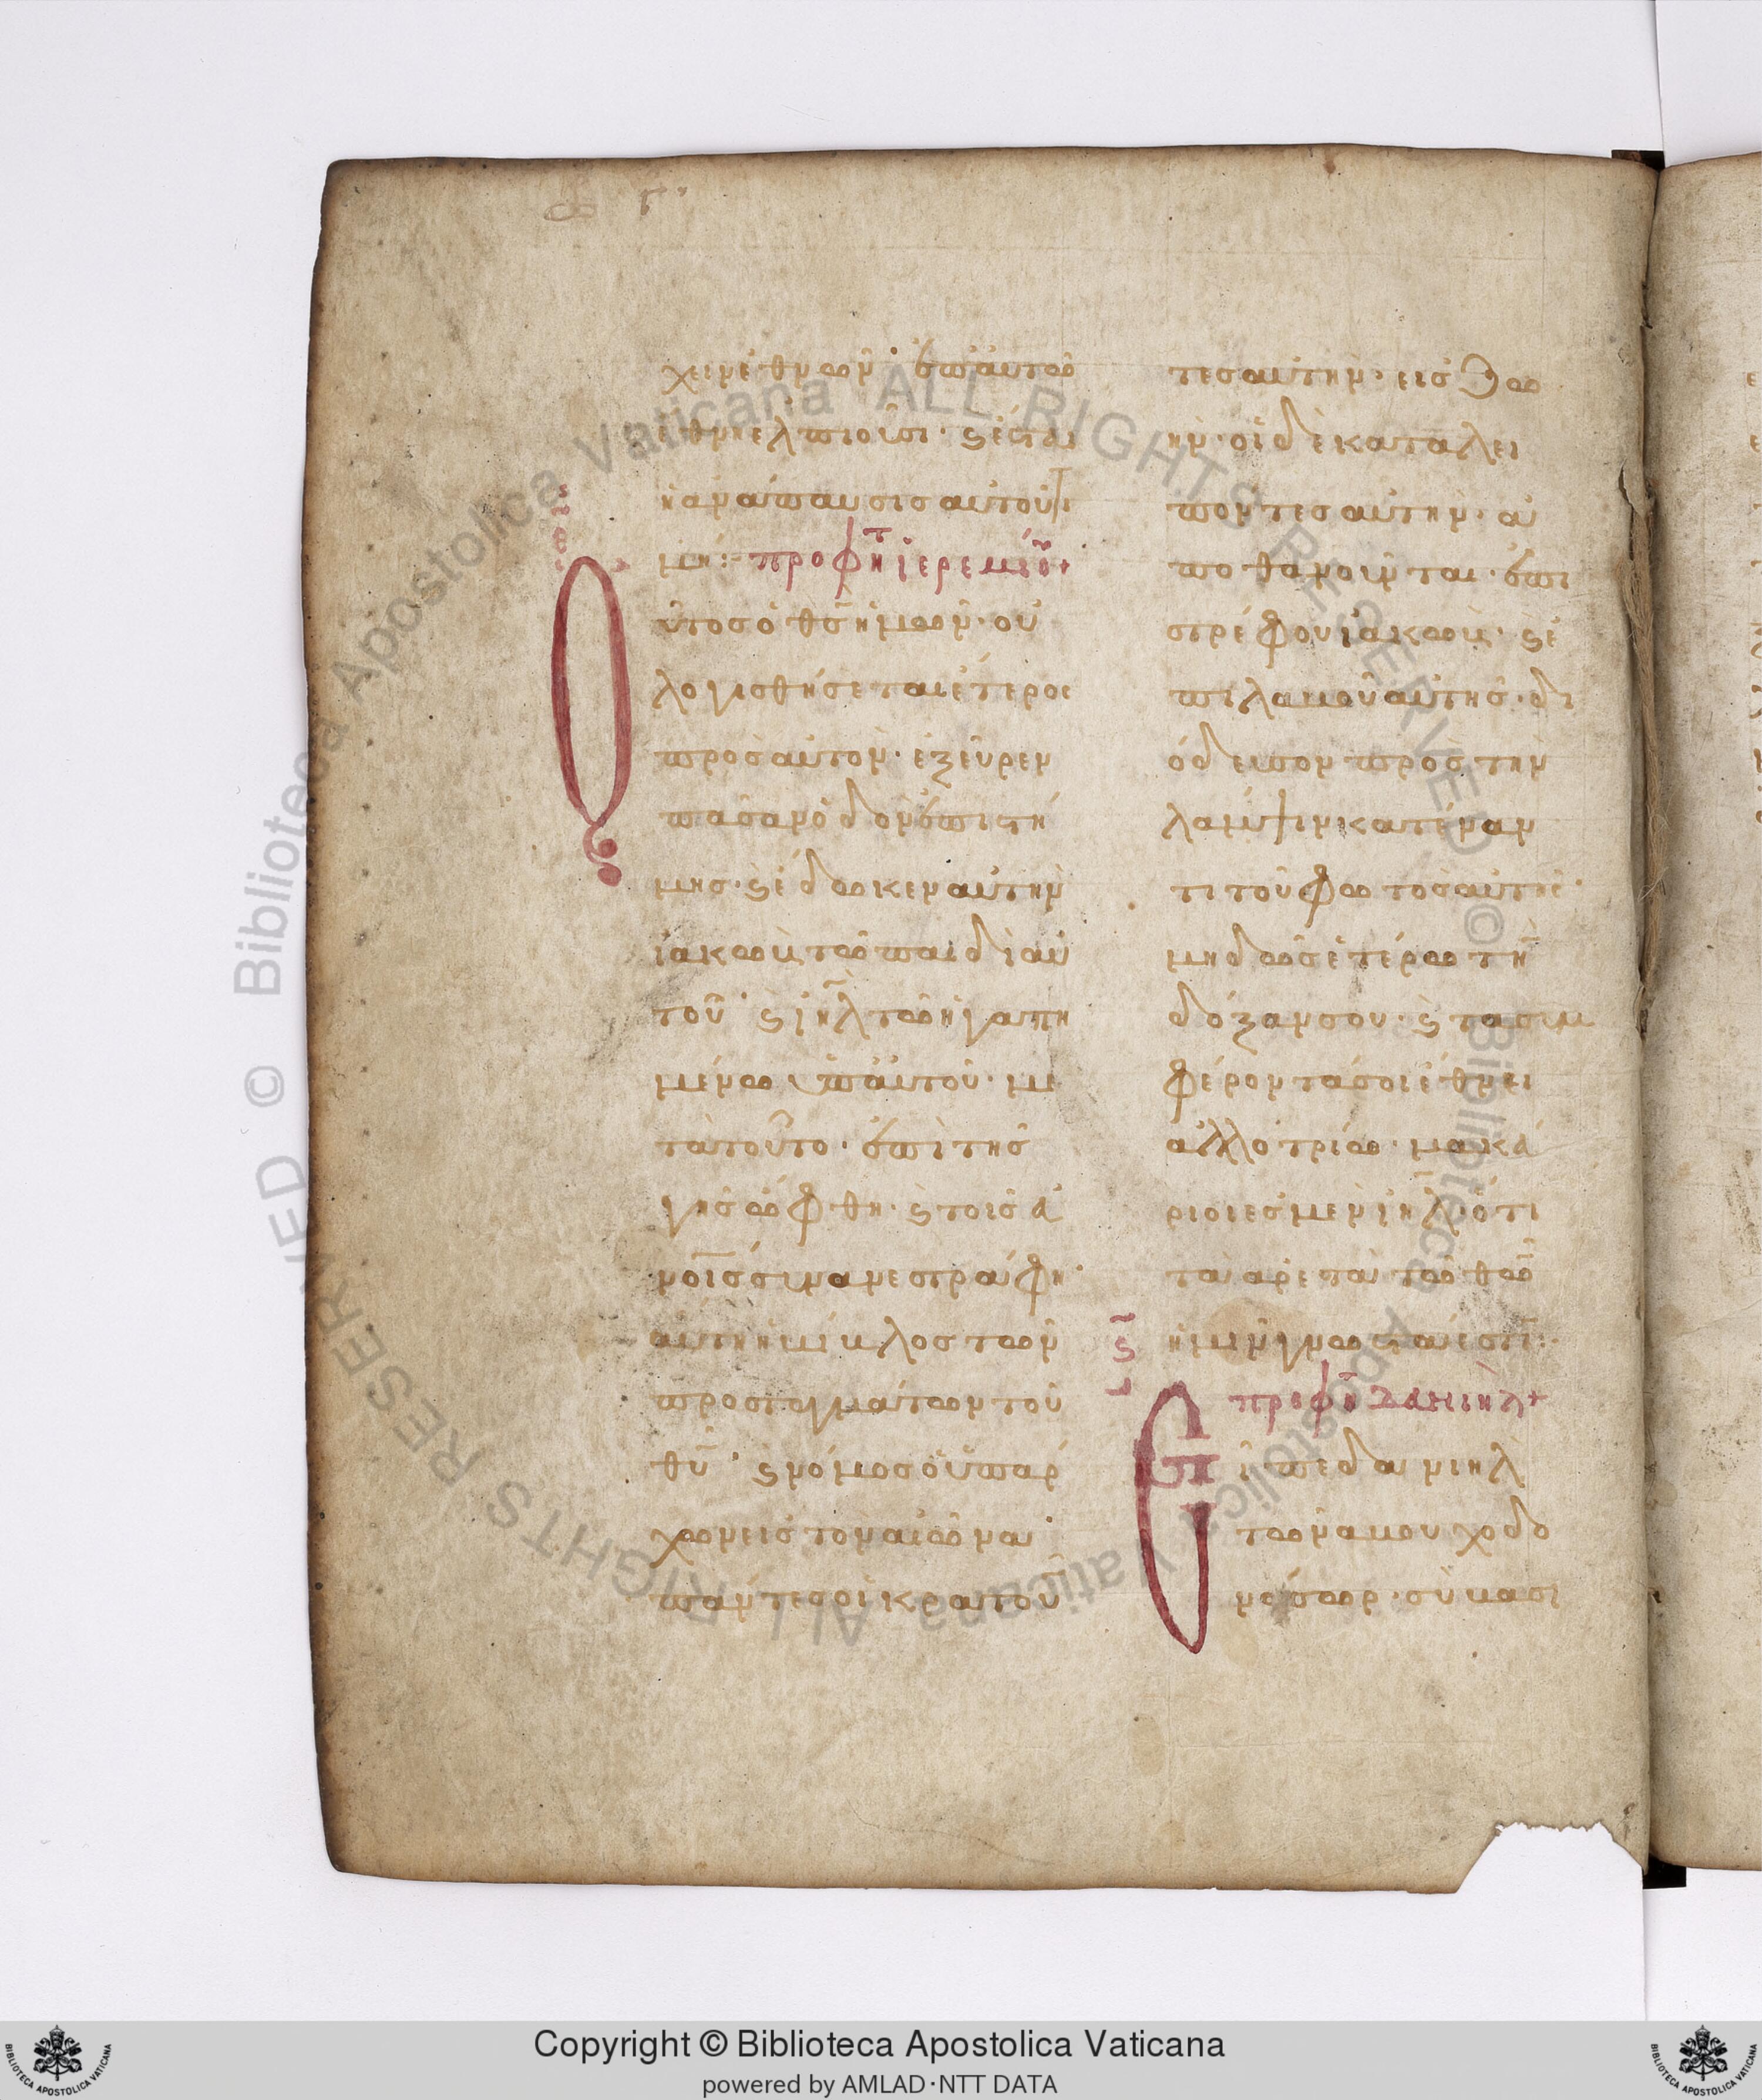 χειν ἐθνῶν· ἐπ αὐτῶ
ἔθνη ἐλπιοῦσι· ϗ ἔσται
ἡ ἀνάπαυσις αὐτοῦ τι
μή:- προφητ ἱερεμίου+
Οὗτος ὁ θς ἡμῶν· οὐ
λογισθήσεται ἕτερος
πρὸς αὐτόν· ἐξεῦρεν
πᾶσαν ὁδὸν ἐπιστή
μης· ϗ ἔδωκεν αὐτὴν
ἰακὼβ τῶ παιδὶ αὐ
τοῦ· ϗ ιηλ τῶ ἠγαπη
μένω ὑπ αὐτοῦ· με
τὰ τοῦτο· ἐπὶ τῆς
γῆς ὤφθη· ϗ τοῖς α
νοις συνανεστράφη·
αὕτη ἡ βίβλος τῶν
προσταγμάτων τοῦ
θυ· ϗ νόμος ὁ ὑπάρ
χων εἰς τὸν αἰῶνα·
πάντες οἱ κρατοῦν
τες αὐτὴν· εἰς ζω
ήν· οἱ δὲ καταλει
πόντες αὐτὴν· ἀ
ποθανοῦνται· ἐπι
στρέφου ἰακώβ· ϗ ἐ
πιλαβοῦ αὐτῆς· δι
όδευσον πρὸς τὴν
λάμψιν κατέναν
τι τοῦ φωτὸς αὐτῆς·
μὴ δῶς ἑτέρω τὴν
δόξαν σου· ϗ τὰ συμ
φέροντά σοι ἔθνει
ἀλλοτρίω· μακά
ριοι ἐσμὲν ιηλ ὅτι
τὰ ἀρεστὰ τῶ θω
ἡμῖν γνωστά ἐστι:-
προφη Δανιὴλ+
Εἶπε δανιὴλ
τῶ ναβουχοδο
νόσωρ· σὺ βασι